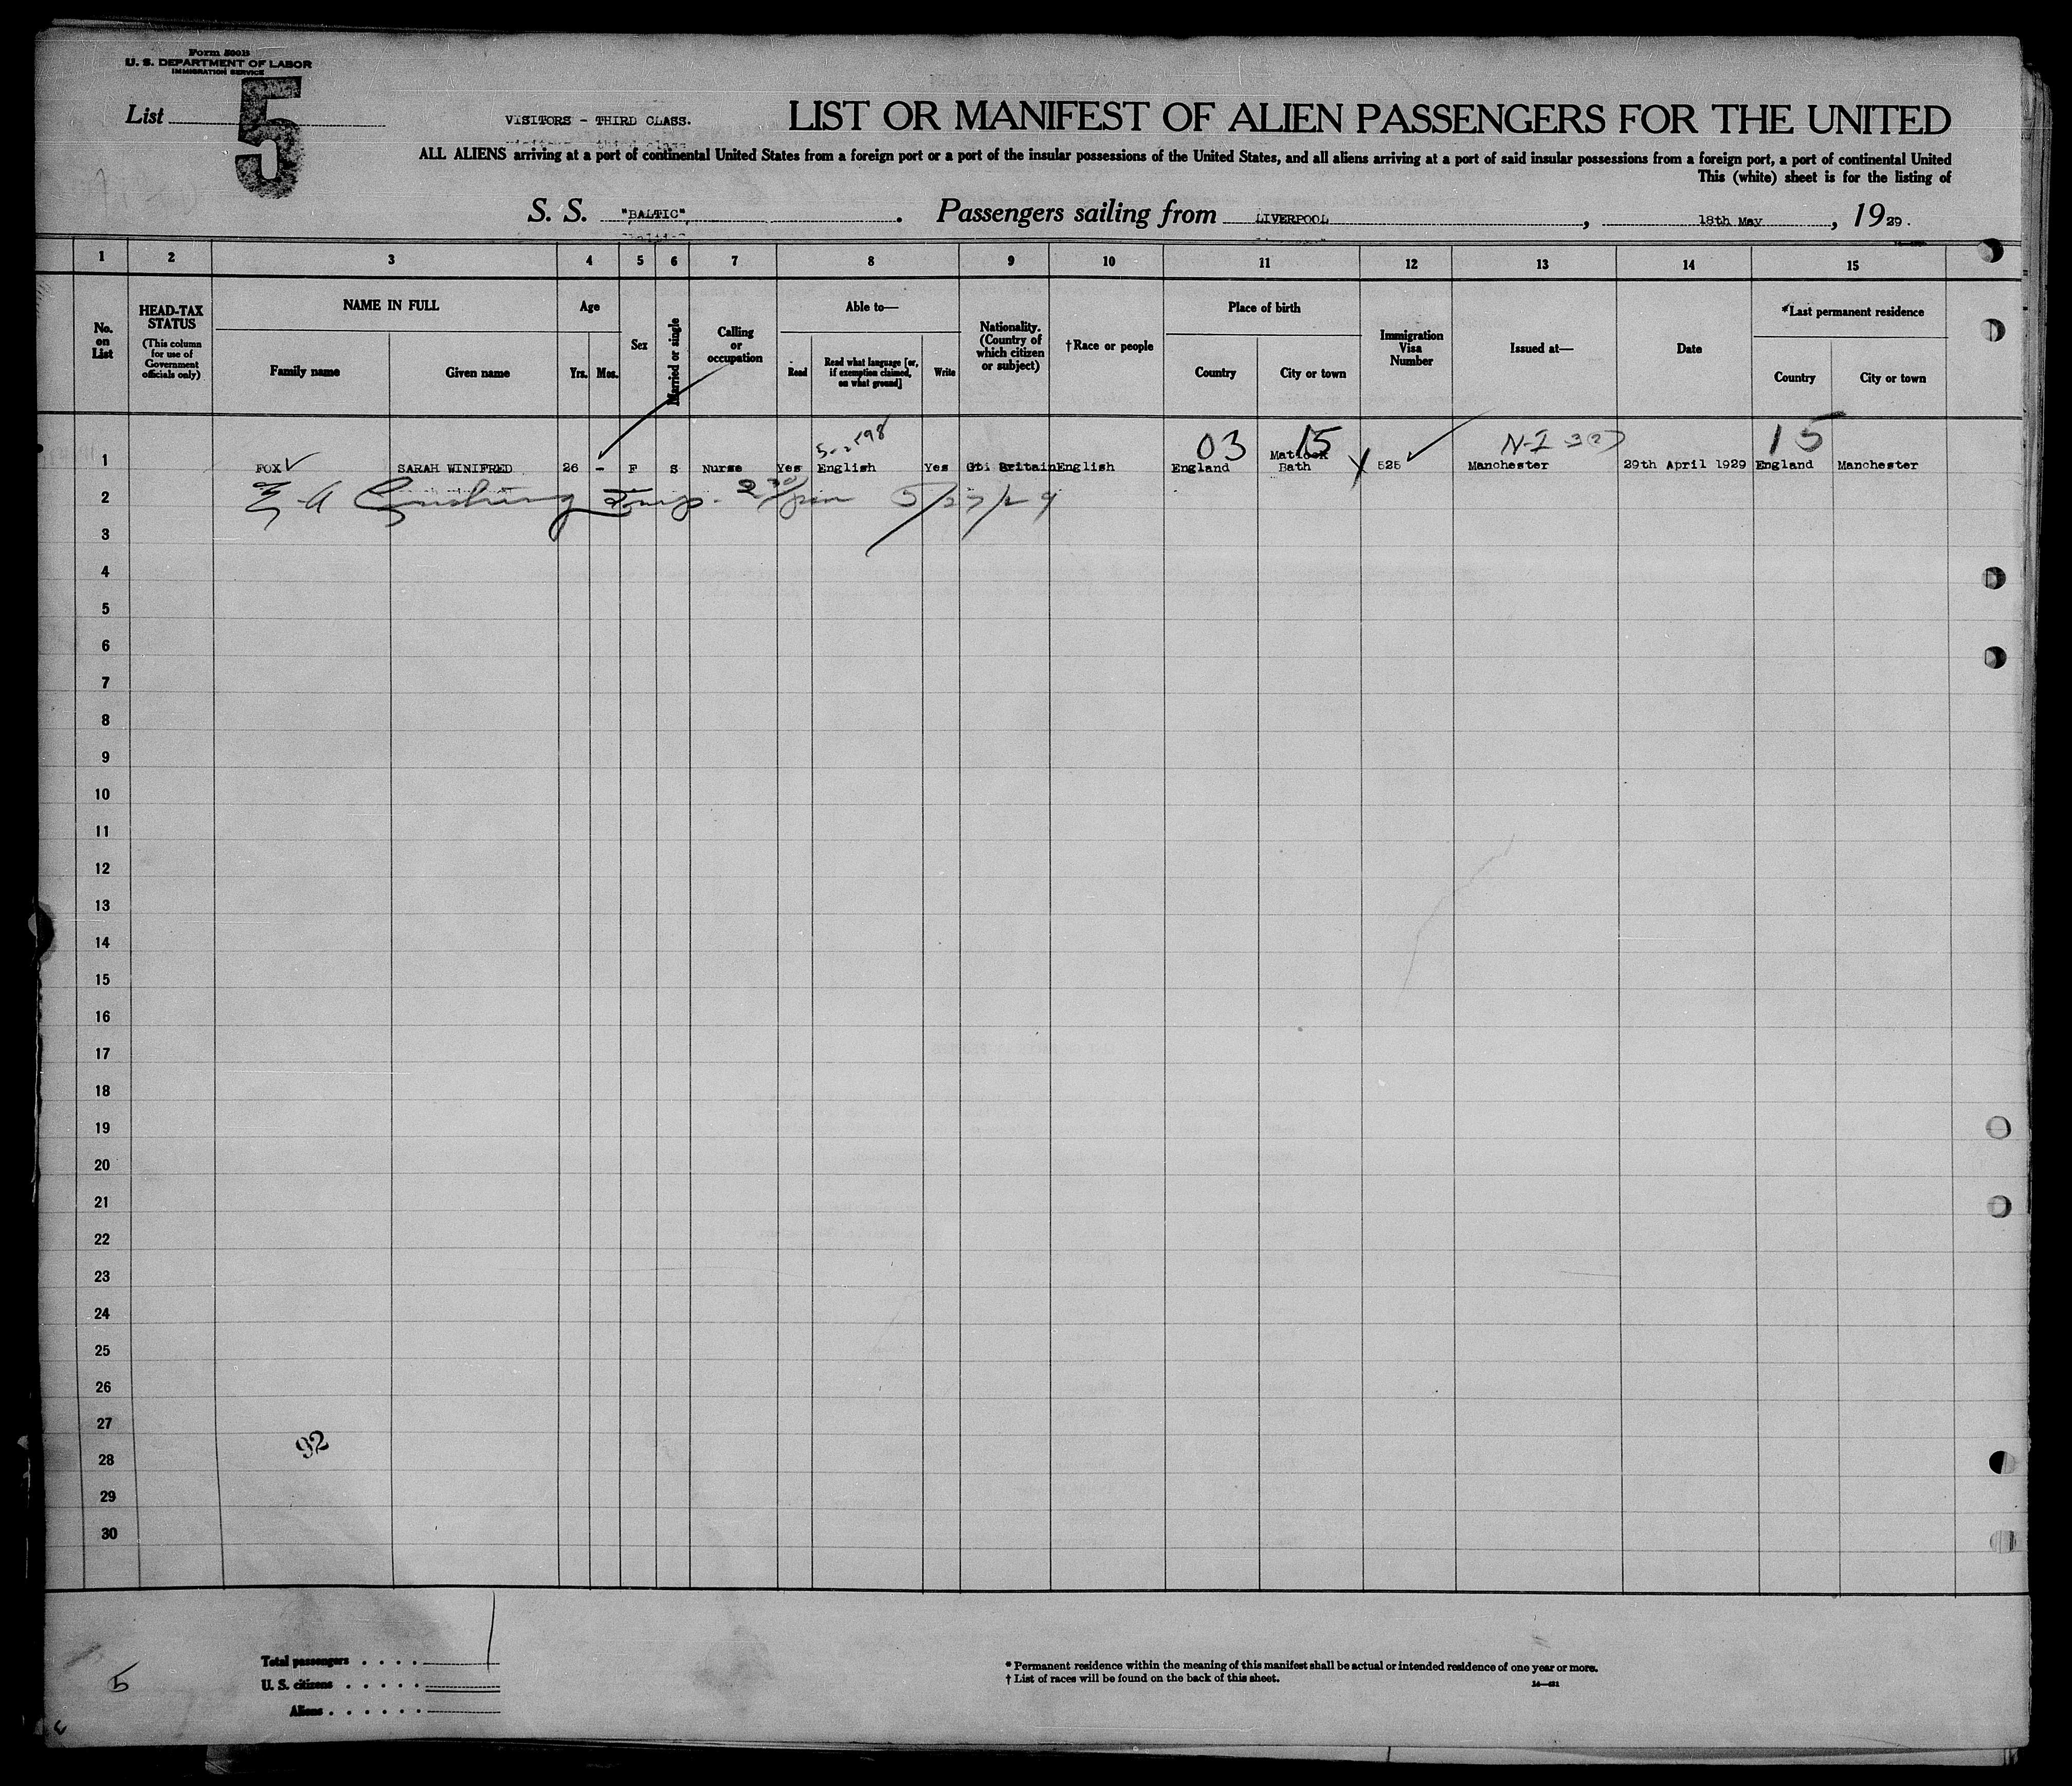 Form 500B
U. S. DEPARTMENT OF LABOR
IMMIGRATION SERVICE
List 5
VISITORS - THIRD CLASS.
LIST OR MANIFEST OF ALIEN PASSENGERS FOR THE UNITED
ALL ALIENS arriving at a port of continental United States from a foreign port or a port of the insular possessions of the United States, and all aliens arriving at a port of said insular possessions from a foreign port, a port of continental United
This (white) sheet is for the listing of
S. S. "BALTIC", . Passengers sailing from LIVERPOOL , 18th May , 1929.
1 2 3 4 5 6 7 8 9 10 11 12 13 14 15
No. on List
HEAD-TAX STATUS
(This column for use of Government officials only)
NAME IN FULL
Family name
Given name
Age
Yrs.
Mos.
Sex
Married or single
Calling or occupation
Able to—
Read
Read what language [or, if exemption claimed, on what ground]
Write
Nationality. (Country of which citizen or subject)
†Race or people
Place of birth
Country
City or town
Immigration Visa Number
Issued at—
Date
*Last permanent residence
Country
City or town
03 15 15
1 FOX SARAH WINIFRED 26 - F S Nurse Yes English Yes Gt. Britain English England Matlock Bath 525 Manchester 29th April 1929 England Manchester
2 5/27/29
3
4
5
6
7
8
9
10
11
12
13
14
15
16
17
18
19
20
21
22
23
24
25
26
27
92
28
29
30
Total passengers . . . . 1
U. S. citizens . . . . .
Aliens . . . . . .
5
* Permanent residence within the meaning of this manifest shall be actual or intended residence of one year or more.
† List of races will be found on the back of this sheet.